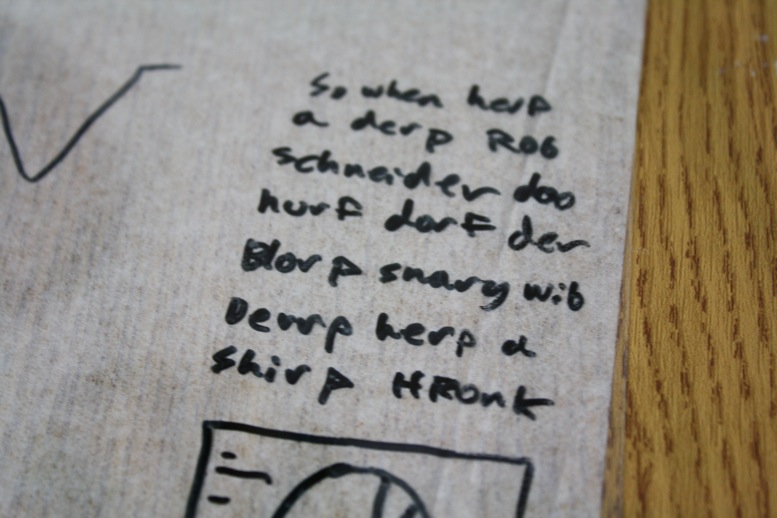 So when herp
a derp ROB
schneider doo
hurf dorf der
Blorp snary wib
Derrp herp a
shirp HRONK